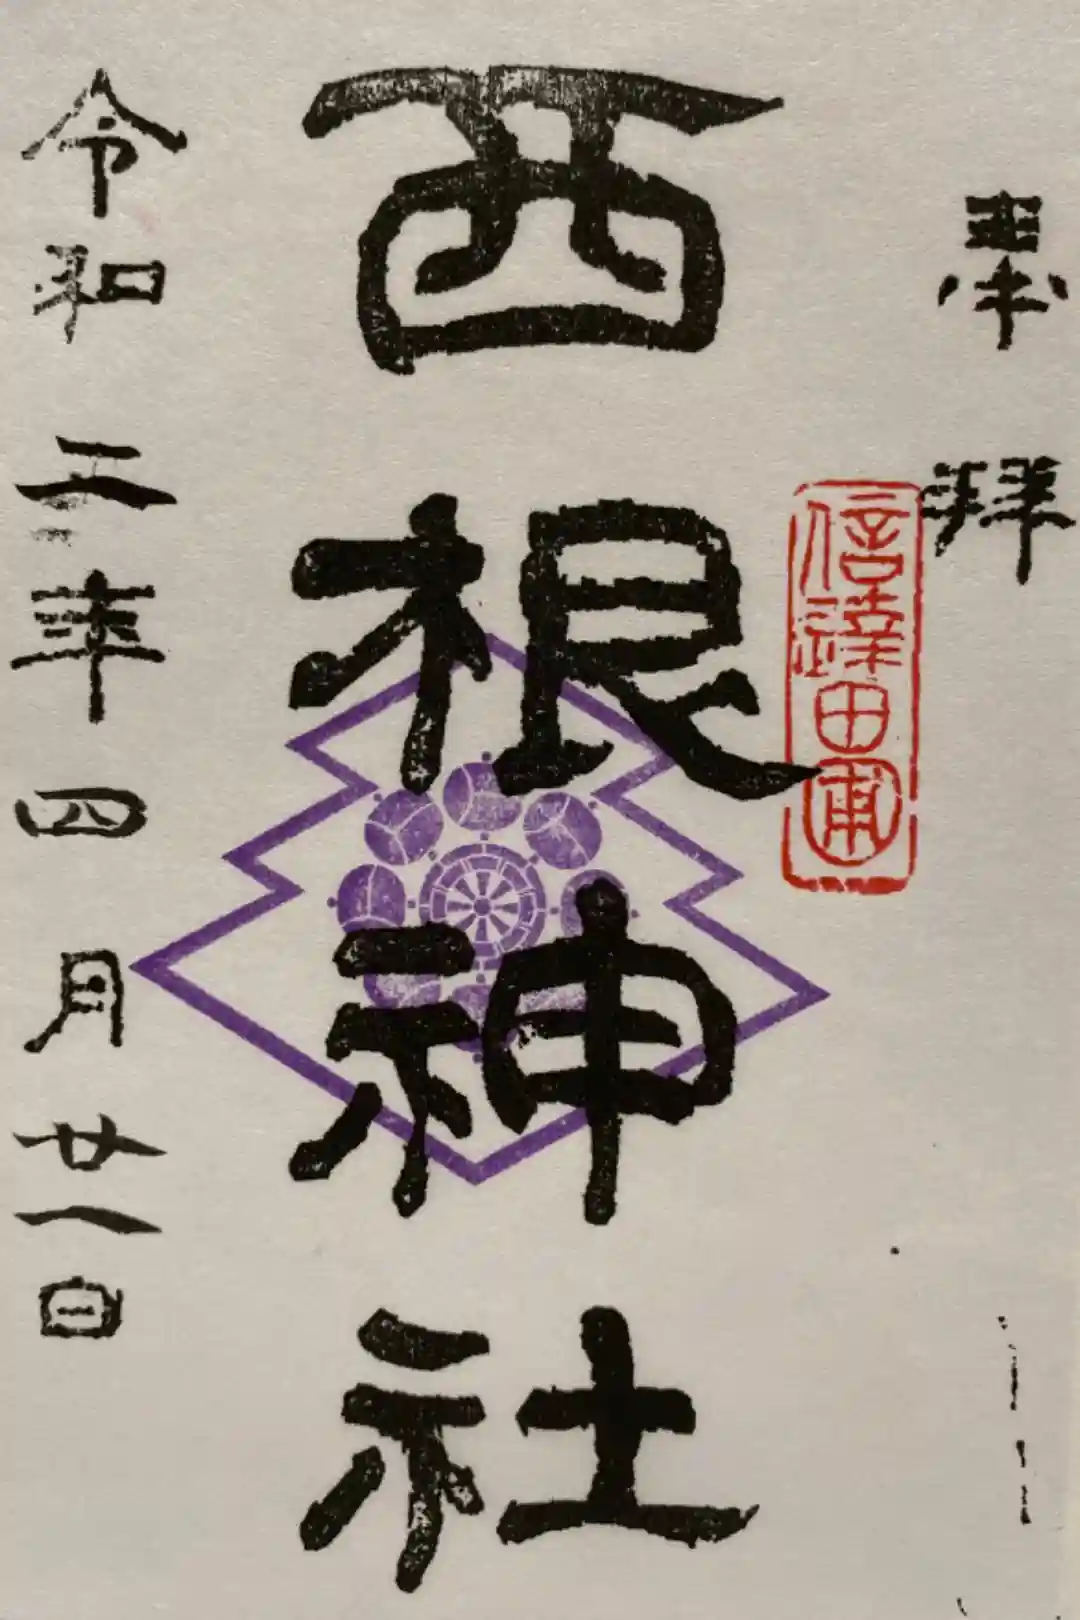 奉拝
信達田圃
西根神社
令和 年四月廿一日